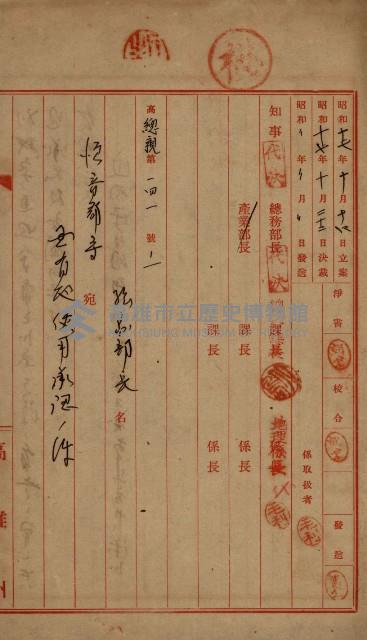 昭和十七年十月 日立案
昭和十七年十月 日決裁
昭和 年 月 日發送
淨書
校合
發送
係取扱者
知事
代決
總務部長
代決
課長
地理係長
產業部長
課長
係長
課長
係長
高總親第一四一號ノ一
總務部長名
恒春郡守宛
國有地使用承認ノ件
高雄州
高雄市立歷史博物館
KAOHSIUNG MUSEUM OF HISTORY